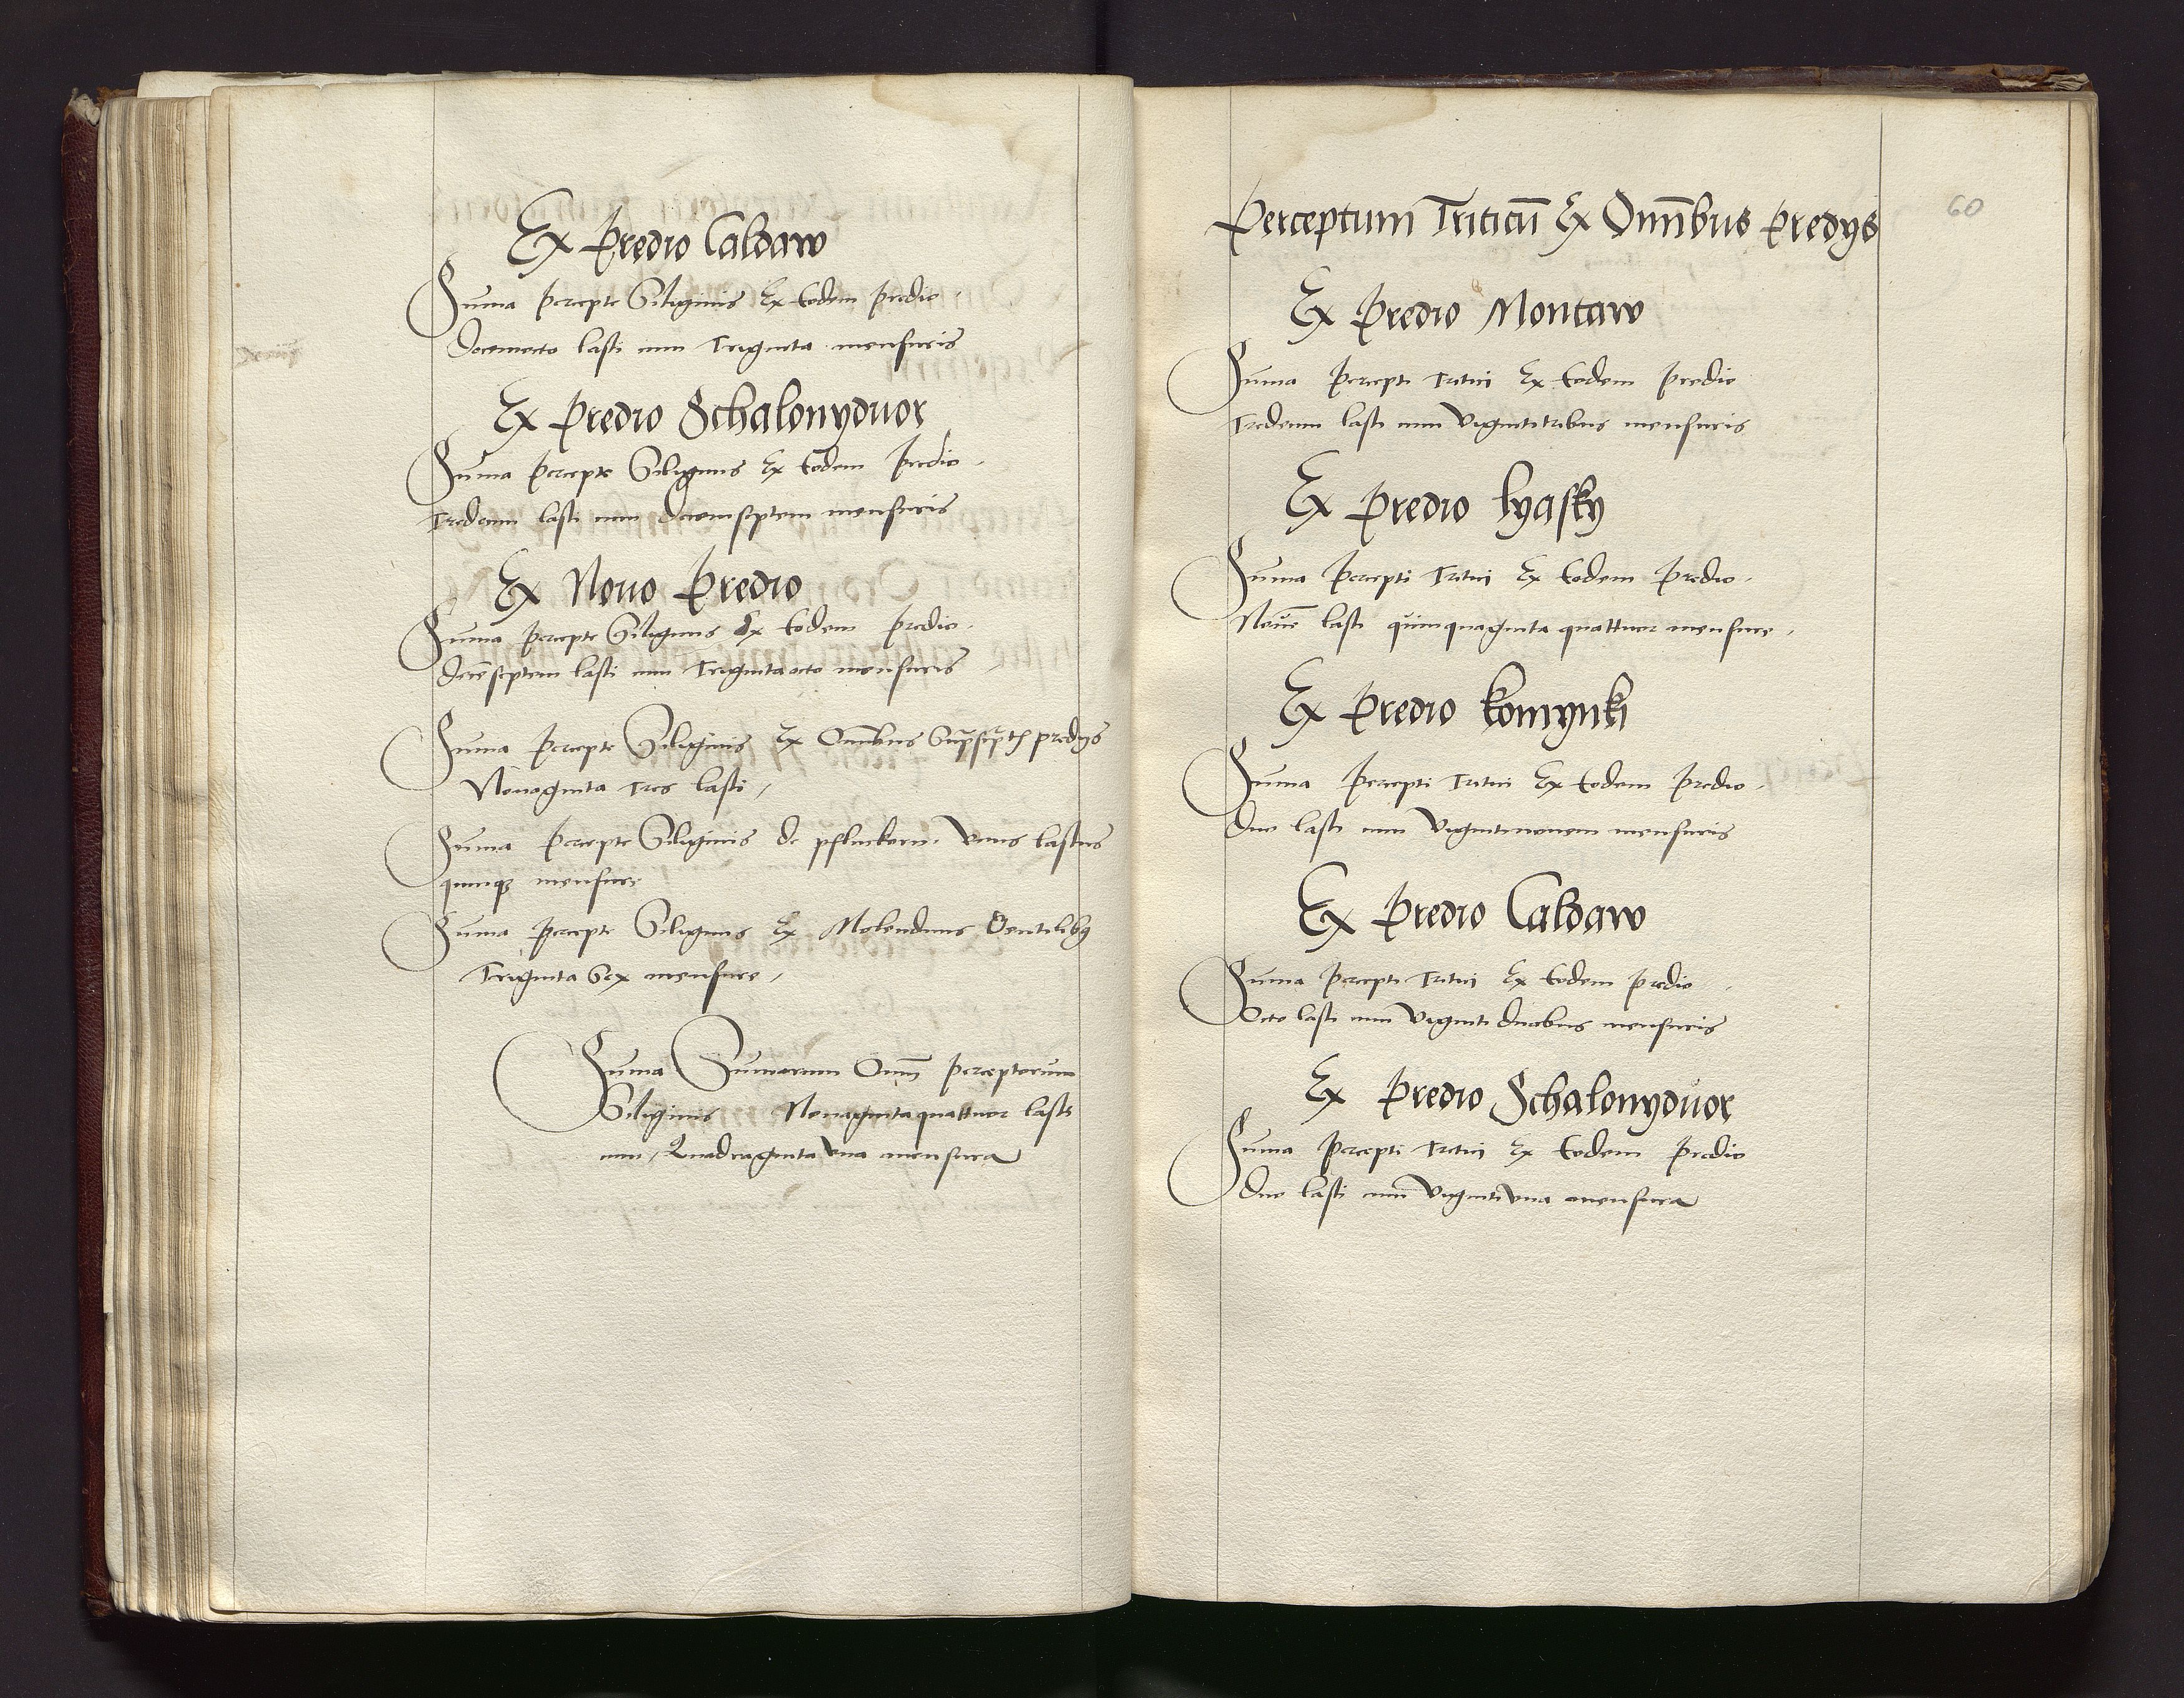 Ex Predio Caldaw
Suma percepte Siliginis Ex Eodem predio
Decemocto lasti cum Triginta mensuris
Ex Predio Schalonyduor
Suma percepte Siliginis Ex Eodem predio
Tredecim lasti cum Decemseptem mensuris
Ex Nouo Predio
Suma percepte Siliginis Ex Eodem predio
Decēseptem lasti cum Trigintaocto mensuris
Suma percepte Siliginis Ex Omībus predys
Nonaginta Tres lasti
Suma percepte Siliginis de pfluckorn Vnus lastus
quinqz mensure
Suma percepte Siliginis Ex Molendinis Ventilibz
Triginta Sex mensure
Suma Sumarum Omī perceptorum
Siliginis Nonagintaquattuor lasti
cum Quadraginta vna mensura
Perceptum Triticū Ex Omībus Predys
60
Ex Predio Montaw
Suma percepti Tritici Ex Eodem predio
Tredecim lasti cum Vigintitribus mensuris
Ex Predio Lyasky
Suma percepti Tritici Ex Eodem predio
Nouē lasti quinquaginta quattuor mensure
Ex Predio Komynki
Suma percepti Tritici Ex Eodem predio
Duo lasti cum Vigintinouem mensuris
Ex Predio Caldaw
Suma percepti Tritici Ex Eodem predio
Octo lasti cum Viginti duobus mensuris
Ex Predio Schalonyduor
Suma percepti Tritici Ex Eodem predio
Duo lasti cum Vigintivna mensura